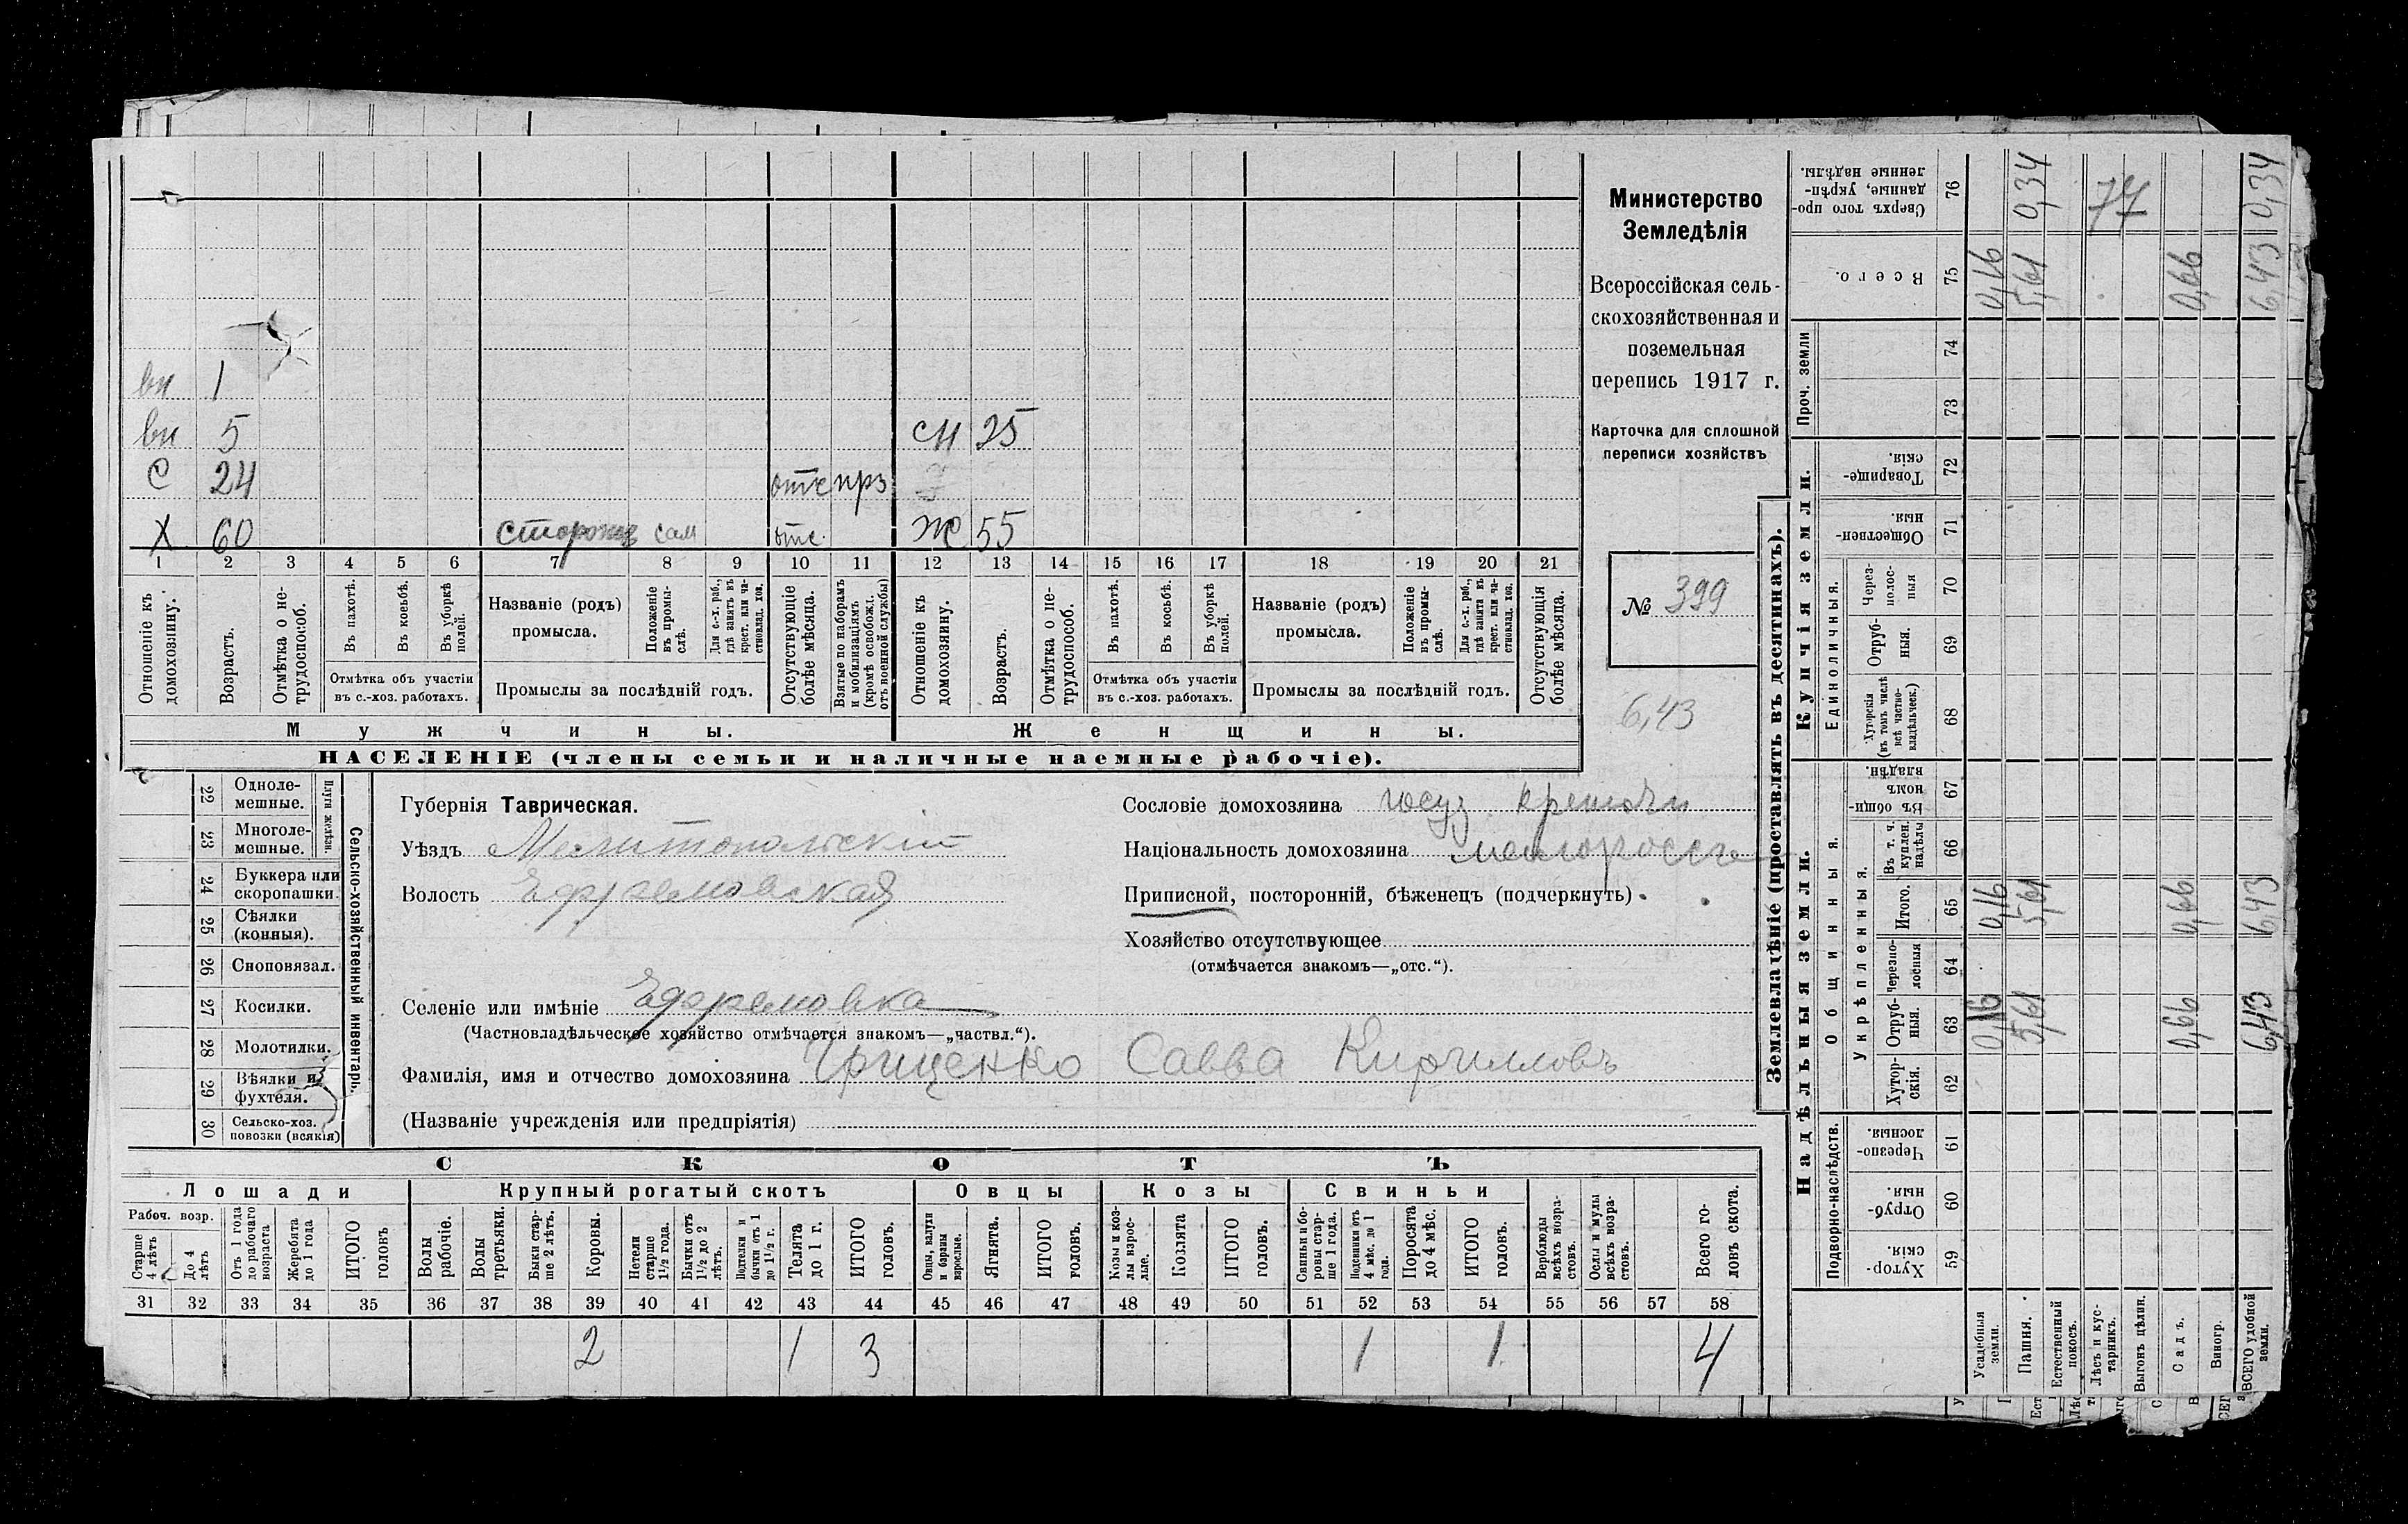 вн 1
вн 5
С 24 отс
Х 60 сторож сам отс.
сн 25
Ж 55
1 2 3 4 5 6 7 8 9 10 11 12 13 14 15 16 17 18 19 20 21
Отношеніе къ домохозяину.
Возрастъ.
Отмѣтка о нетрудоспособ.
Въ пахотѣ.
Въ косьбѣ.
Въ уборкѣ полей.
Отмѣтка объ участіи
въ с.-хоз. работахъ.
Названіе (родъ)
промысла.
Положеніе въ промыслѣ.
Для с.-х. раб., гдѣ занятъ въ крест. или частновлад. хоз.
Промыслы за послѣдній годъ.
Отсутствующіе болѣе мѣсяца.
Взятые по наборамъ и мобилизаціямъ (кромѣ освобожд. отъ военной службы)
Отношеніе къ домохозяину.
Возрастъ.
Отмѣтка о нетрудоспособ.
Въ пахотѣ.
Въ косьбѣ.
Въ уборкѣ полей.
Отмѣтка объ участіи
въ с.-хоз. работахъ.
Названіе (родъ)
промысла.
Положеніе въ промыслѣ.
Для с.-х. раб., гдѣ занята въ крест. или частновлад. хоз.
Промыслы за послѣдній годъ.
Отсутствующія болѣе мѣсяца.
Мужчины.
Женщины.
НАСЕЛЕНІЕ (члены семьи и наличные наемные рабочіе).
Министерство
Земледѣлія
Всероссійская сель-
скохозяйственная и
поземельная
перепись 1917 г.
Карточка для сплошной
переписи хозяйствъ
№ 399
6,43
22 Одноле-
мешные.
23 Многоле-
мешные.
Плуги желѣзн.
24 Буккера или
скоропашки.
25 Сѣялки
(конныя).
26 Сноповязал.
27 Косилки.
28 Молотилки.
29 Вѣялки и
фухтеля.
30 Сельско-хоз.
повозки (всякія)
Сельско-хозяйственный инвентарь.
Губернія Таврическая.
Уѣздъ Мелитопольскій
Волость Ефремовская
Селеніе или имѣніе Ефремовка
(Частновладѣльческое хозяйство отмѣчается знакомъ—„частвл.“).
Фамилія, имя и отчество домохозяина Грищенко Савва Кирилловъ
(Названіе учрежденія или предпріятія)
Сословіе домохозяина госуд
Національность домохозяина малороссъ
Приписной, посторонній, бѣженецъ (подчеркнуть).
Хозяйство отсутствующее
(отмѣчается знакомъ—„отс.“).
СКОТЪ
Лошади
Рабоч. возр.
Старше 4 лѣтъ
До 4 лѣтъ
Отъ 1 года до рабочаго возраста
Жеребята до 1 года
ИТОГО головъ
Крупный рогатый скотъ
Волы рабочіе.
Волы третьяки.
Быки старше 2 лѣтъ.
Коровы.
Нетели старше 1½ года.
Бычки отъ 1½ до 2 лѣтъ.
Подтелки и бычки отъ 1 до 1½ г.
Телята до 1 г.
ИТОГО головъ.
Овцы
Овцы, валухи и бараны взрослые.
Ягнята.
ИТОГО головъ.
Козы
Козы и козлы взрослые.
Козлята
ИТОГО головъ.
Свиньи
Свиньи и боровы старше 1 года.
Подсвинки отъ 4 мѣс. до 1 года.
Поросята до 4 мѣс.
ИТОГО головъ.
Верблюды всѣхъ возрастовъ.
Ослы и мулы всѣхъ возрастовъ.
Всего головъ скота.
31 32 33 34 35 36 37 38 39 40 41 42 43 44 45 46 47 48 49 50 51 52 53 54 55 56 57 58
2 1 3 1 1 4
Землевладѣніе (проставлять въ десятинахъ).
Надѣльныя земли.
Подворно-наслѣдств.
Хуторскія. 59
Отрубныя 60
Черезполосныя. 61
Общинныя.
Укрѣпленныя.
Хуторскія. 62
Отрубныя. 63
Черезполосныя 64
Итого. 65
Въ т. ч. куплен. надѣлы 66
Въ общинномъ владѣн. 67
Купчія земли.
Единоличныя.
Хуторскія (въ томъ числѣ всѣ частновладѣльческ.) 68
Отрубныя. 69
Черезполосныя 70
Общественныя. 71
Товарищескія. 72
Проч. земли
73
74
Всего. 75
Сверхъ того проданные, укрѣпленные надѣлы. 76
Усадебныя земли. 0,16 0,16 0,16
Пашня. 5,61 5,61 5,61 0,34
Естественный покосъ.
Лѣсъ и кустарникъ.
77
Выгонъ цѣлин.
Садъ. 0,66 0,66 0,66
Виногр.
ВСЕГО удобной земли. 6,43 6,43 6,43 0,34